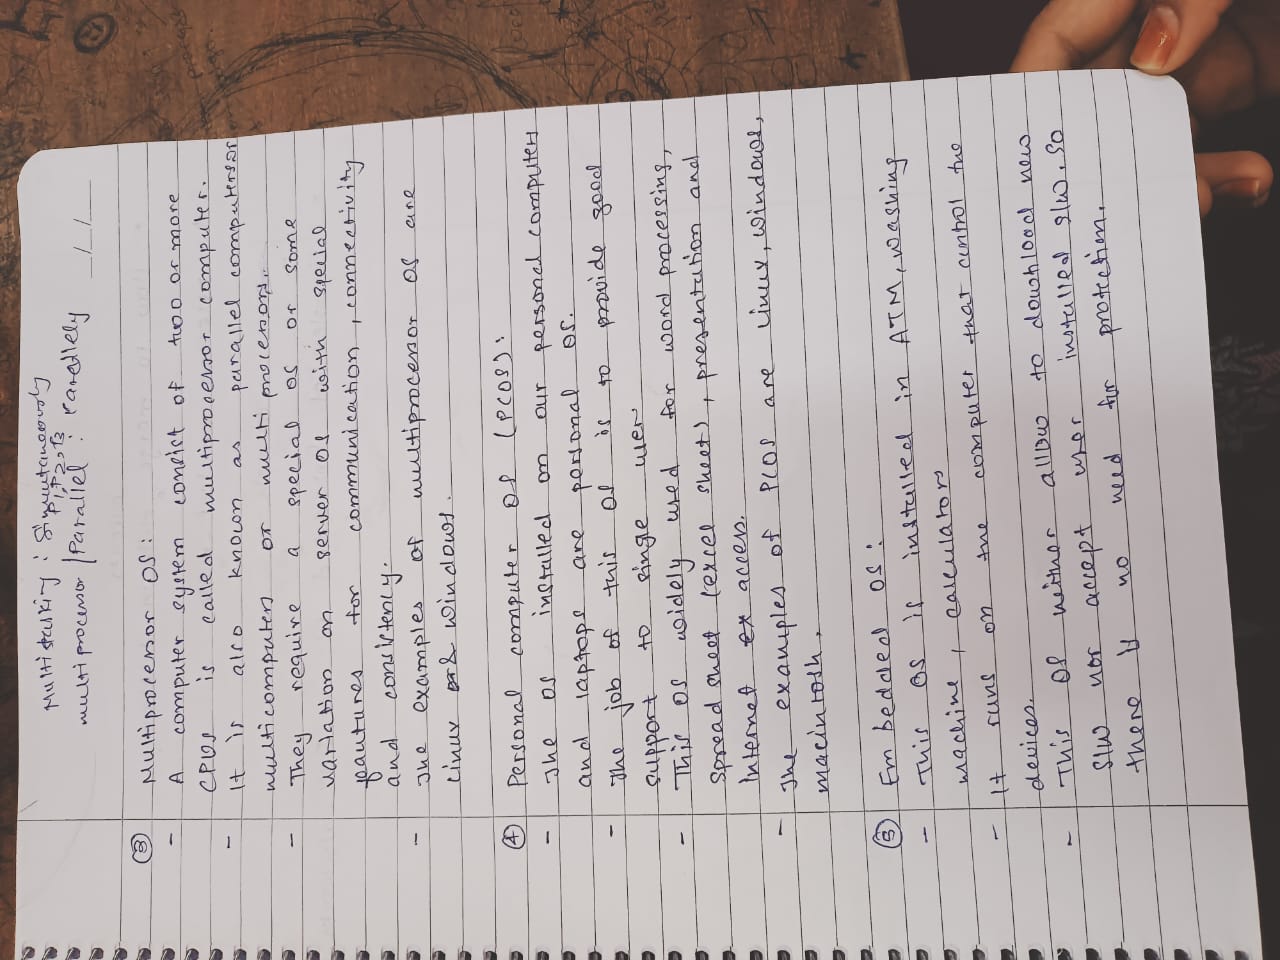 Multitasking : Simultaneously
P1, P2, P3
multiprocessor / Parallel : Paradlely
_/_/_
③ Multiprocessor OS :
- A computer system consist of two or more
CPUs is called multiprocessor computer.
- It is also known as parallel computers or
multicomputers or multi processors.
- They require a special OS or some
variation on server OS with special
feautures for communication, connectivity
and consistency.
- The examples of multiprocessor OS are
Linux & Windows.
④ Personal computer OS (PCOS) :
- The OS installed on our personal computers
and laptops are personal OS.
- The job of this OS is to provide good
support to single user
- This OS widely used for word processing,
Spread sheet (excel sheet), presentation and
Internet access.
- The examples of PCOS are Linux, Windows,
macintosh.
⑤ Em bedded OS :
- This OS is installed in ATM, washing
machine, calculators
- It runs on the computer that control the
devices.
- This OS neither allow to download new
S/W nor accept user installed S/W. So
there is no need for protection.